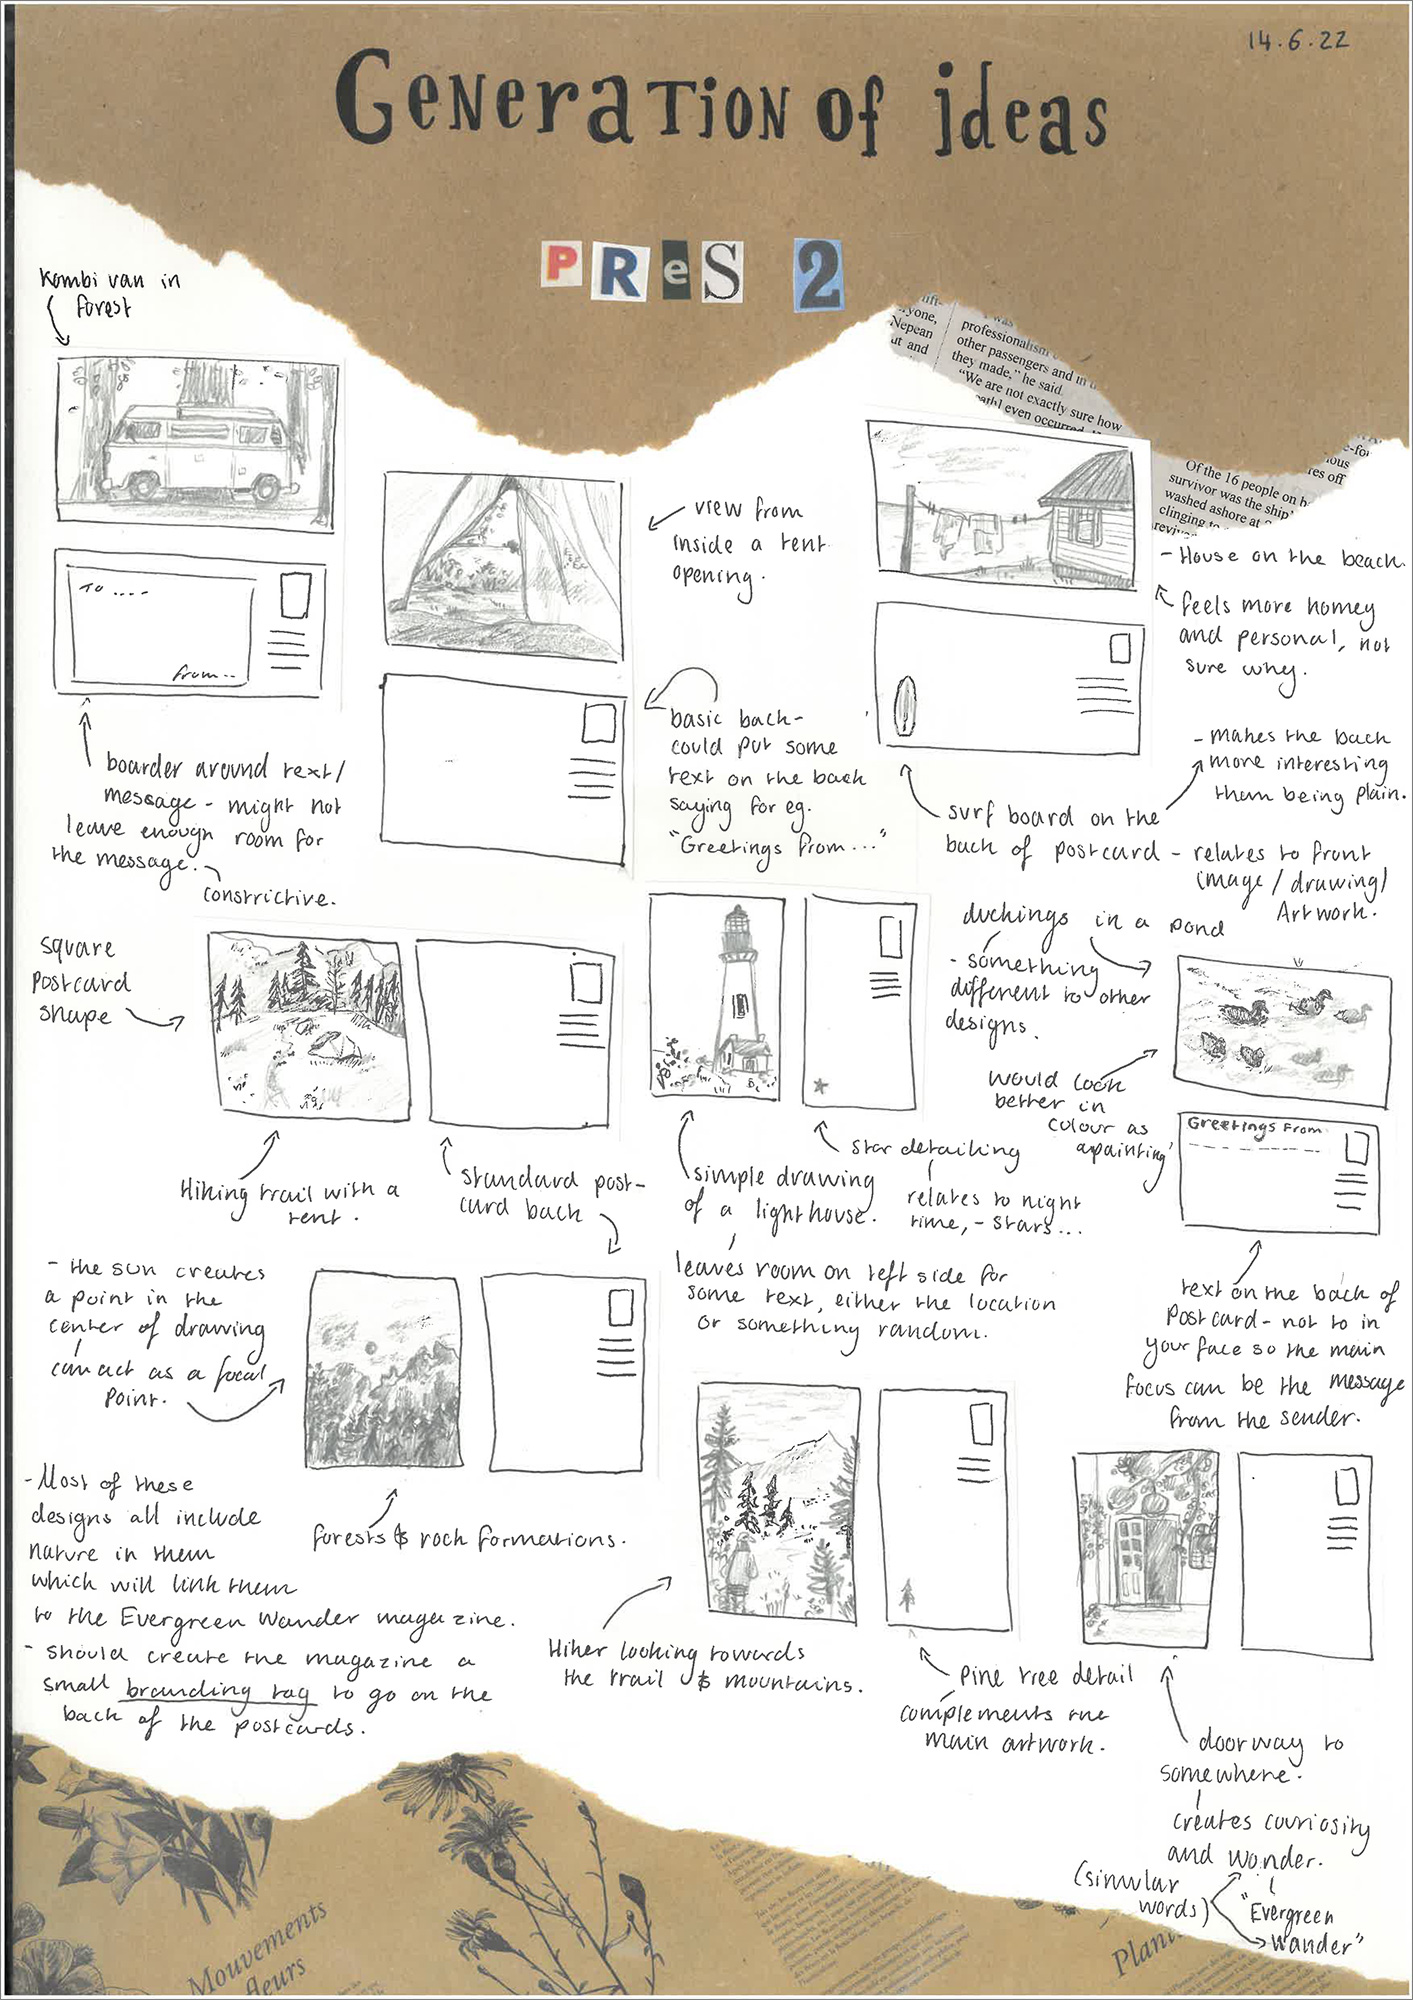 14.6.22
Generation of ideas
PReS 2
Kombi van in
forest
To ....
from...
boarder around text/
message - might not
leave enough room for
the message.
constrictive.
view from
inside a tent
opening.
basic back-
could put some
text on the back
saying for eg.
"Greetings from..."
yone,
Nepean
ut and
professionalism
other passengers and in
they made," he said.
"We are not exactly sure how
even occurred
Of the 16 people on
survivor was the ship'
washed ashore at
clinging to
- House on the beach.
feels more homey
and personal, not
sure why.
- makes the back
more interesting
than being plain.
surf board on the
back of postcard - relates to front
image / drawing /
Artwork.
square
postcard
shape
Hiking trail with a
tent.
standard post-
card back
simple drawing
of a lighthouse.
leaves room on left side for
some text, either the location
or something random.
star detailing
relates to night
time, - stars...
duckings in a pond
- something
different to other
designs.
would look
better in
colour as
a painting
Greetings From
text on the back of
postcard - not to in
your face so the main
focus can be the message
from the sender.
- the sun creates
a point in the
center of drawing
can act as a focal
point.
forests & rock formations.
- Most of these
designs all include
nature in them
which will link them
to the Evergreen Wander magazine.
- should create the magazine a
small branding tag to go on the
back of the postcards.
Hiker looking towards
the trail & mountains.
pine tree detail
complements the
main artwork.
doorway to
somewhere.
creates couriosity
and wonder.
(simular
words)
"Evergreen
wander"
Mouvements
fleurs